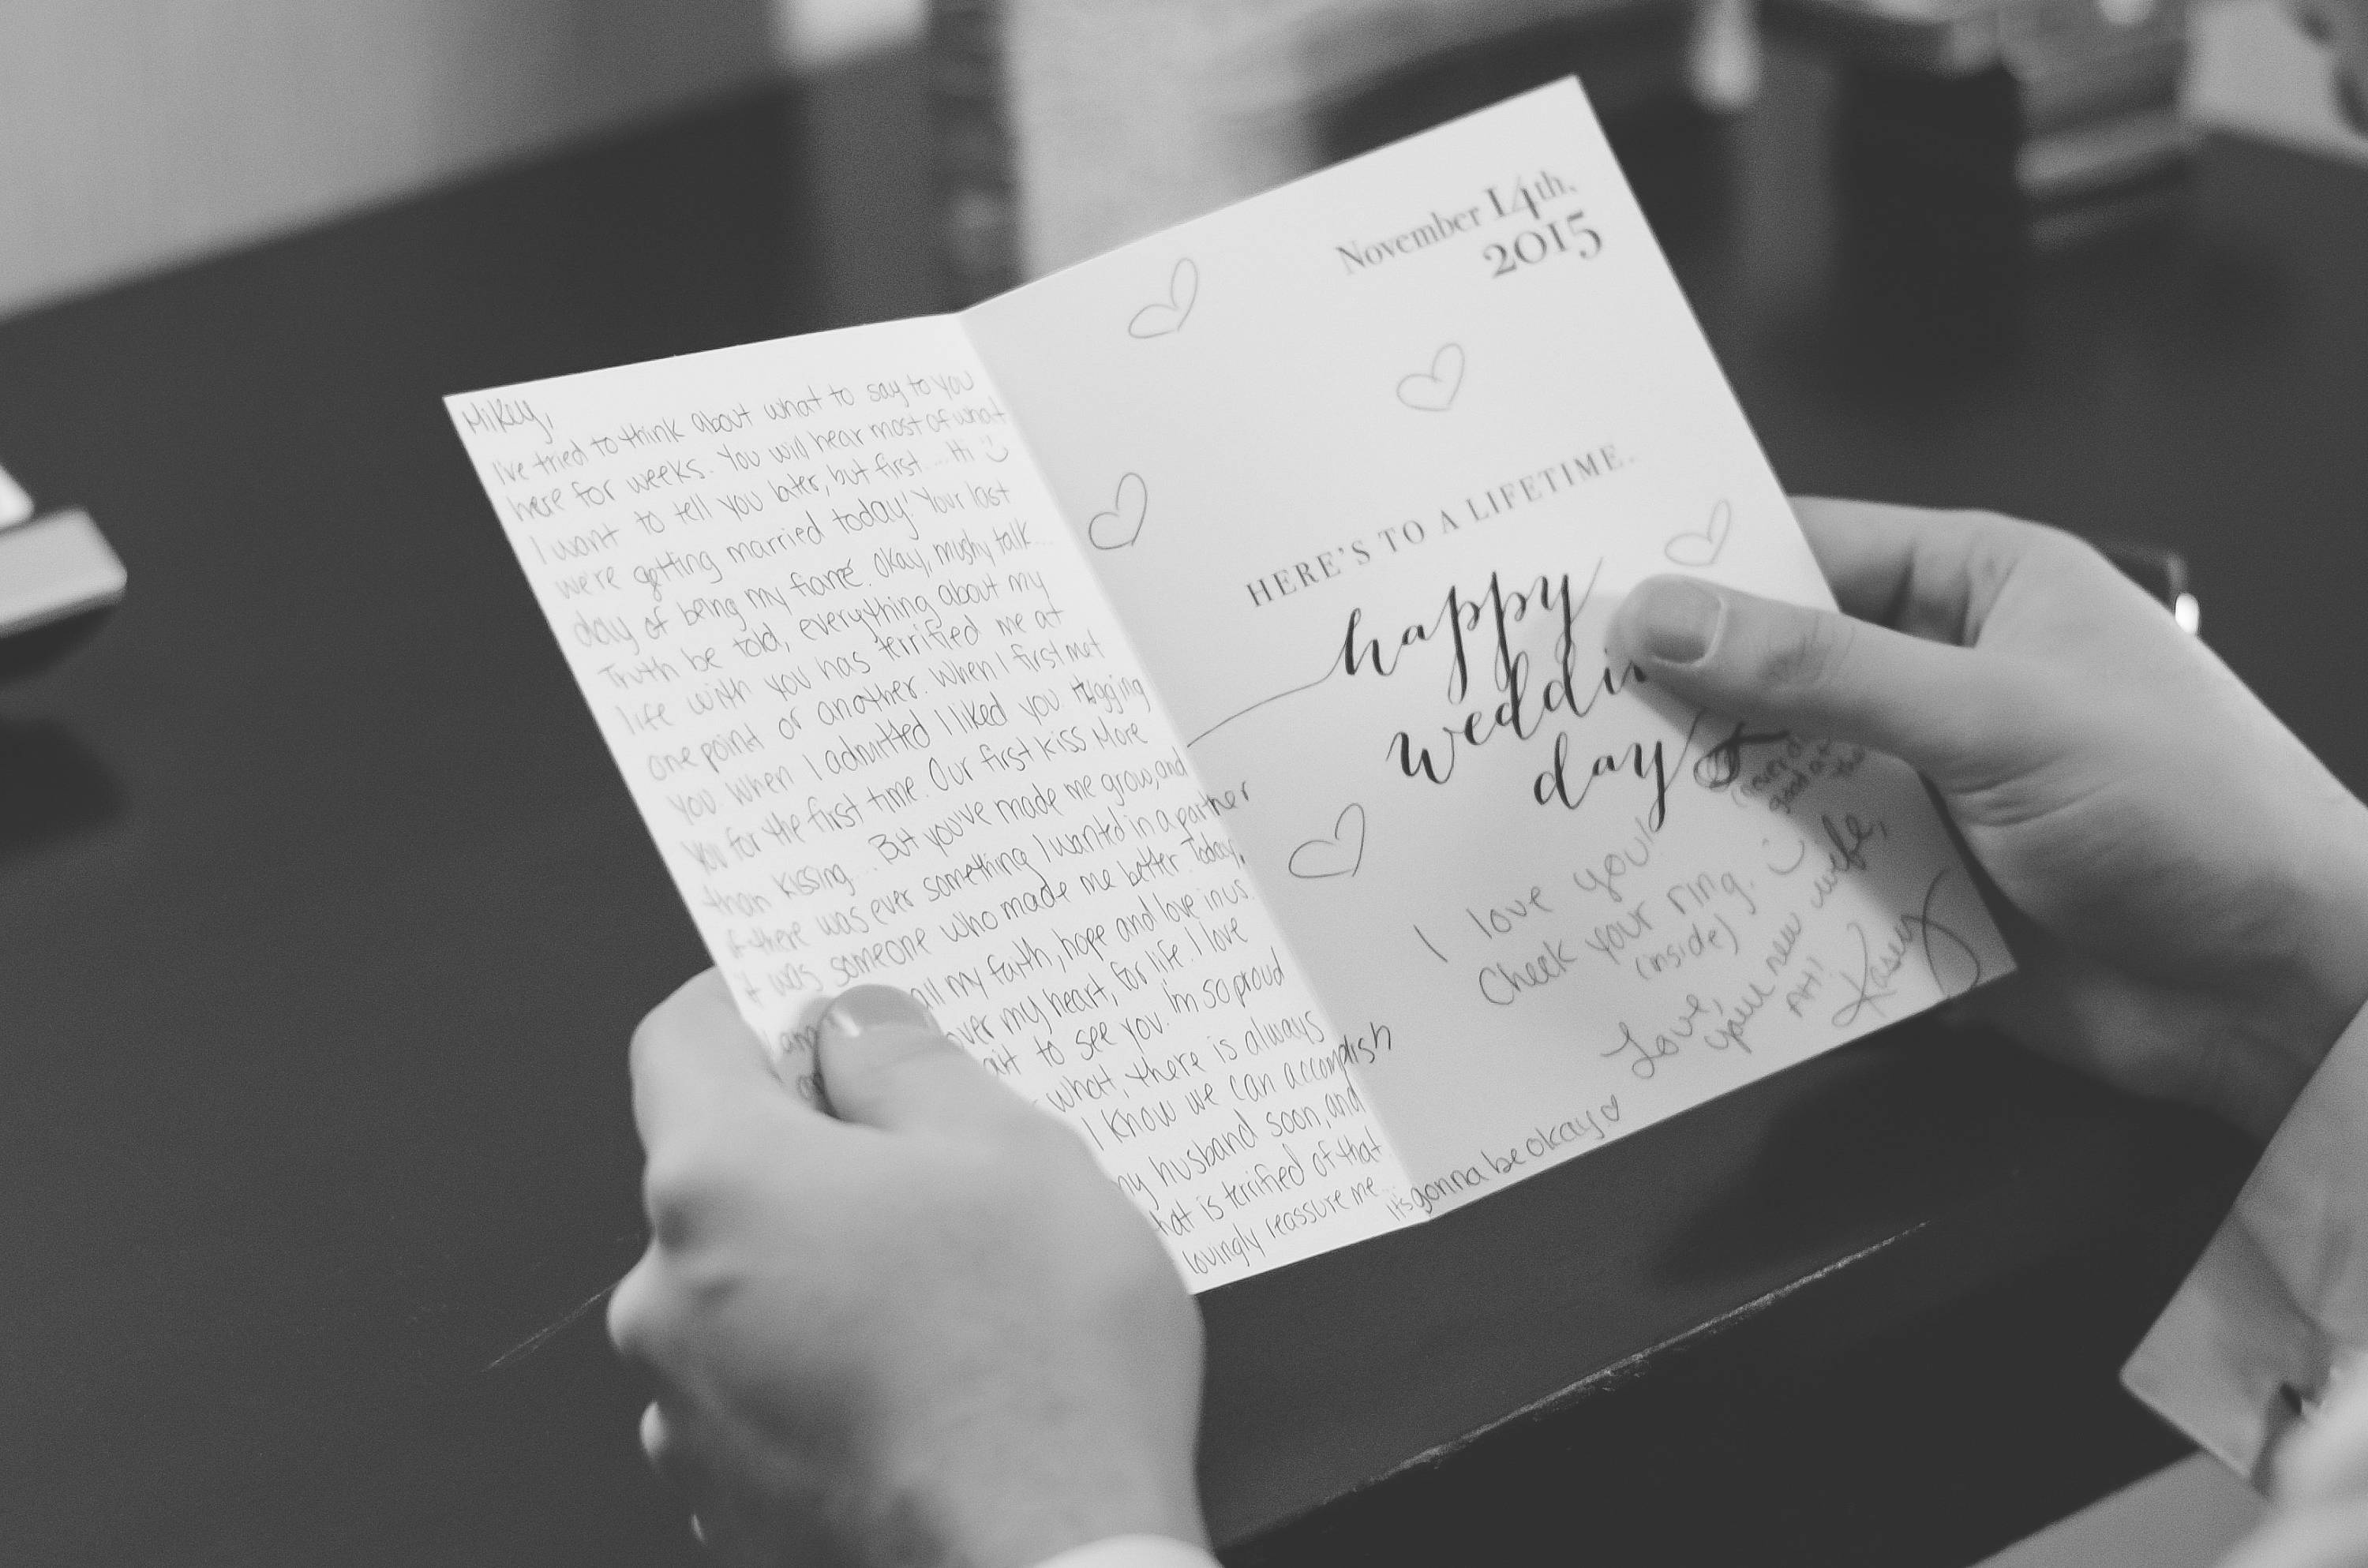 Mikey,
I've tried to think about what to say to you
here for weeks. You will hear most of what
I want to tell you later, but first.... Hi
we're getting married today! Your last
day of being my fiancé. Okay, mushy talk...
Truth be told, everything about my
life with you has terrified me at
one point or another. When I first met
you. When I admitted I liked you. Hugging
you for the first time. Our first kiss. More
than kissing... But you've made me grow, and
if there was ever something I wanted in a partner
it was someone who made me better. Today,
all my faith, hope and love in us.
over my heart, for life. I love
to see you. I'm so proud
what, there is always
I know we can accomplish
my husband soon, and
that is terrified of that
lovingly reassure me...
it's gonna be okay ♡
November 14th,
2015
HERE'S TO A LIFETIME.
happy
weddin
day
I love you!
Check your ring.
(inside)
Love,
your new wife,
AH!
Kasey